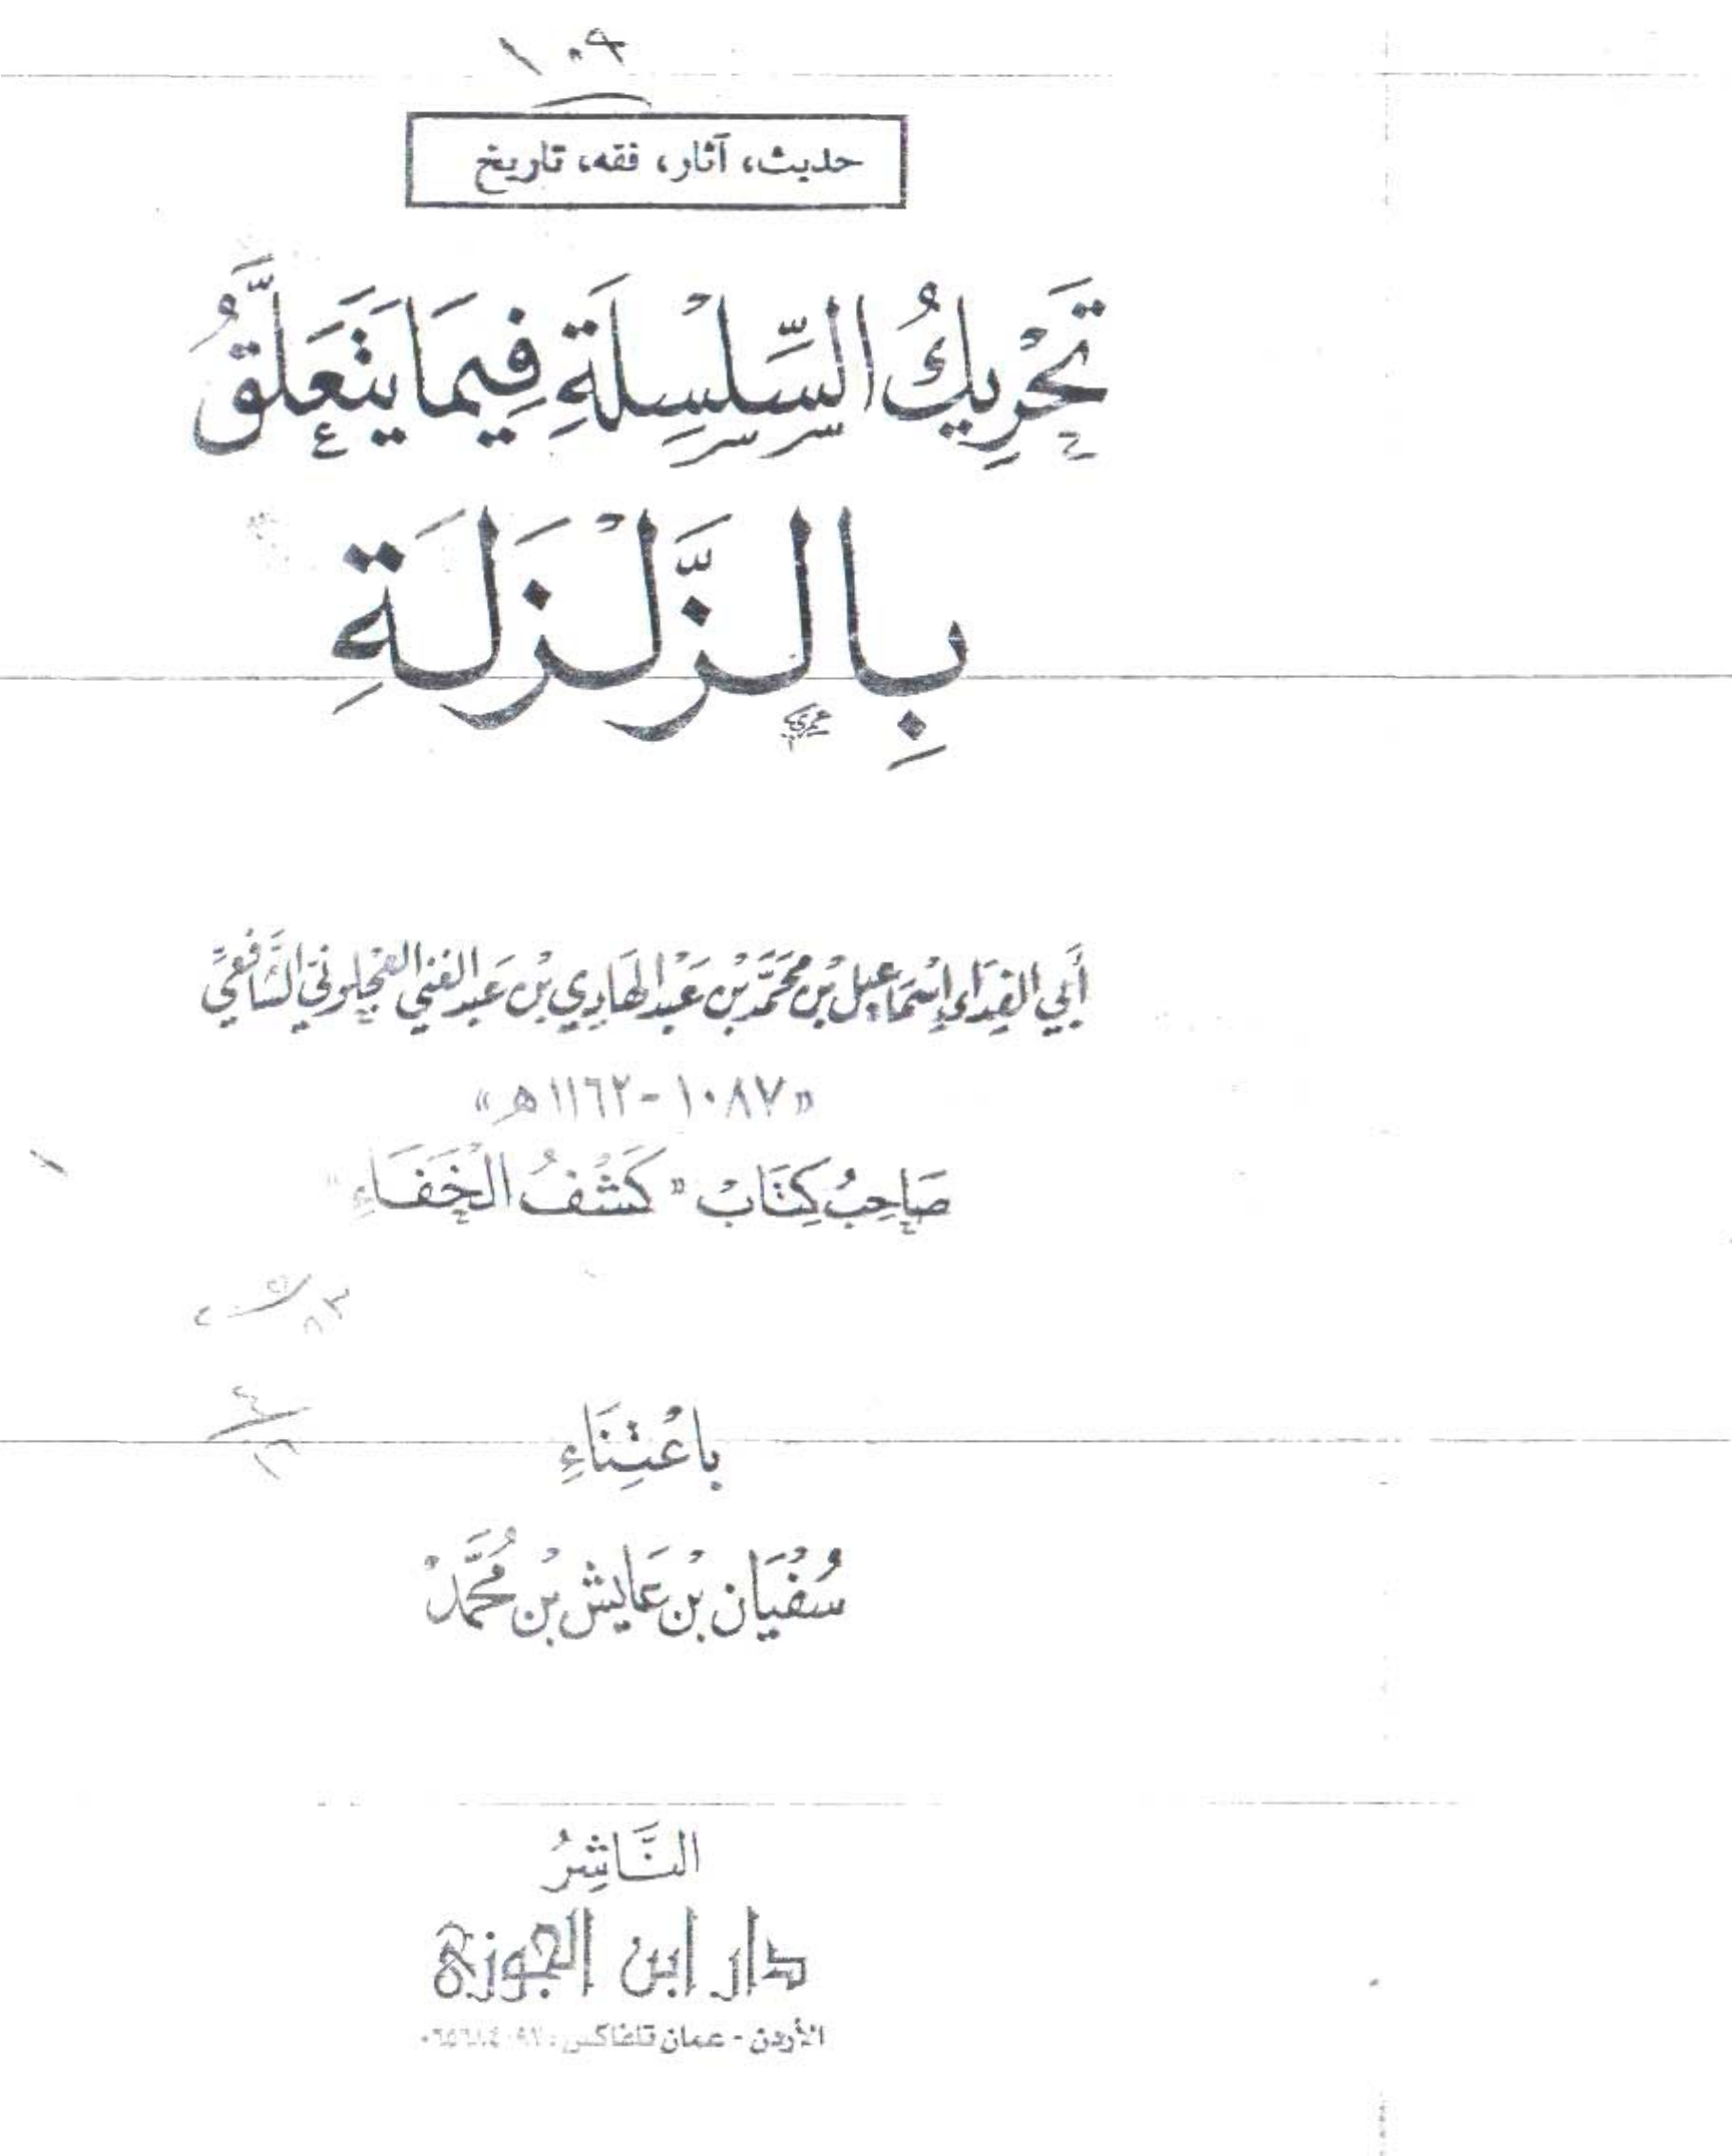 ١٠٩
حديث، آثار، فقه، تاريخ
تَحْرِيكُ السِّلْسِلَةِ فِيمَا يَتَعَلَّقُ
بِالزَّلْزَلَةِ
أَبِي الفِدَاءِ إِسْمَاعِيل بْن مُحَمَّد بْن عَبْد الهَادِي بْن عَبد الغني العَجْلُونِيّ الشَّافِعِيّ
«١٠٨٧ - ١١٦٢ هـ»
صَاحِبُ كِتَابْ «كَشْفُ الْخَفَاءِ»
بِاعْتِنَاءِ
سُفْيَان بْن عَايِش بْن مُحَمَّدْ
النَّاشِرُ
دار ابن الجوزي
الأردن - عمان تلفاكس: